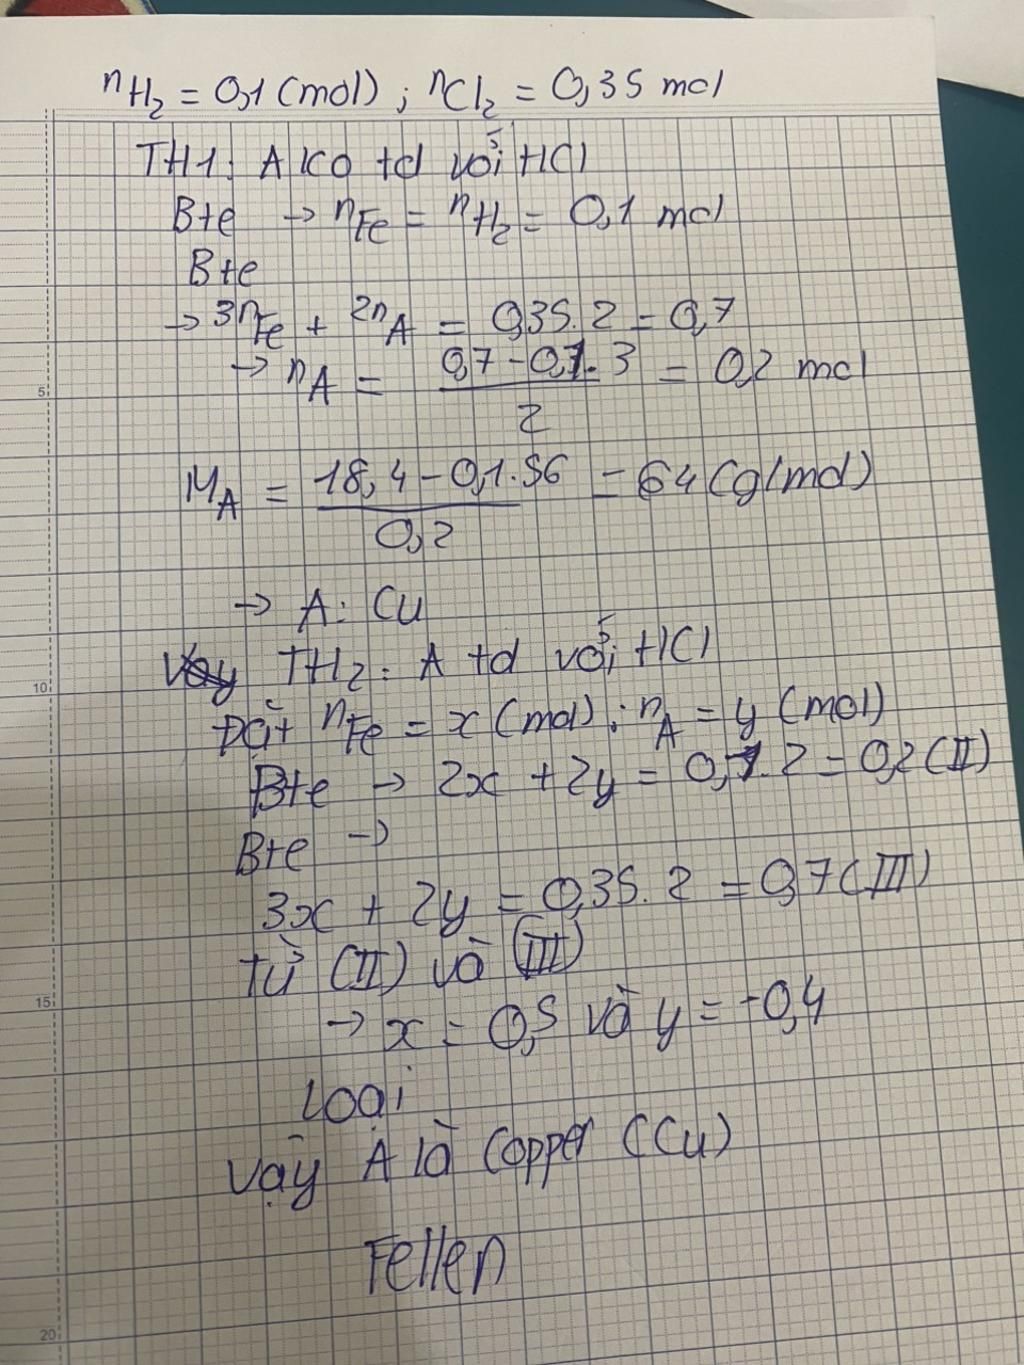 nH₂ = 0,1 (mol) ; nCl₂ = 0,35 mol
TH1: A ko td với HCl
Bte → nFe = nH₂ = 0,1 mol
Bte
→ 3nFe + 2nA = 0,35.2 = 0,7
→ nA = (0,7 - 0,1.3)/2 = 0,2 mol
MA = (18,4 - 0,1.56)/0,2 = 64 (g/mol)
→ A: Cu
TH2: A td với HCl
Đặt nFe = x (mol) ; nA = y (mol)
Bte → 2x + 2y = 0,1.2 = 0,2 (II)
Bte →
3x + 2y = 0,35.2 = 0,7 (III)
từ (II) và (III)
→ x = 0,5 và y = -0,4
Loại
Vậy A là Copper (Cu)
Fellen
5
10
15
20